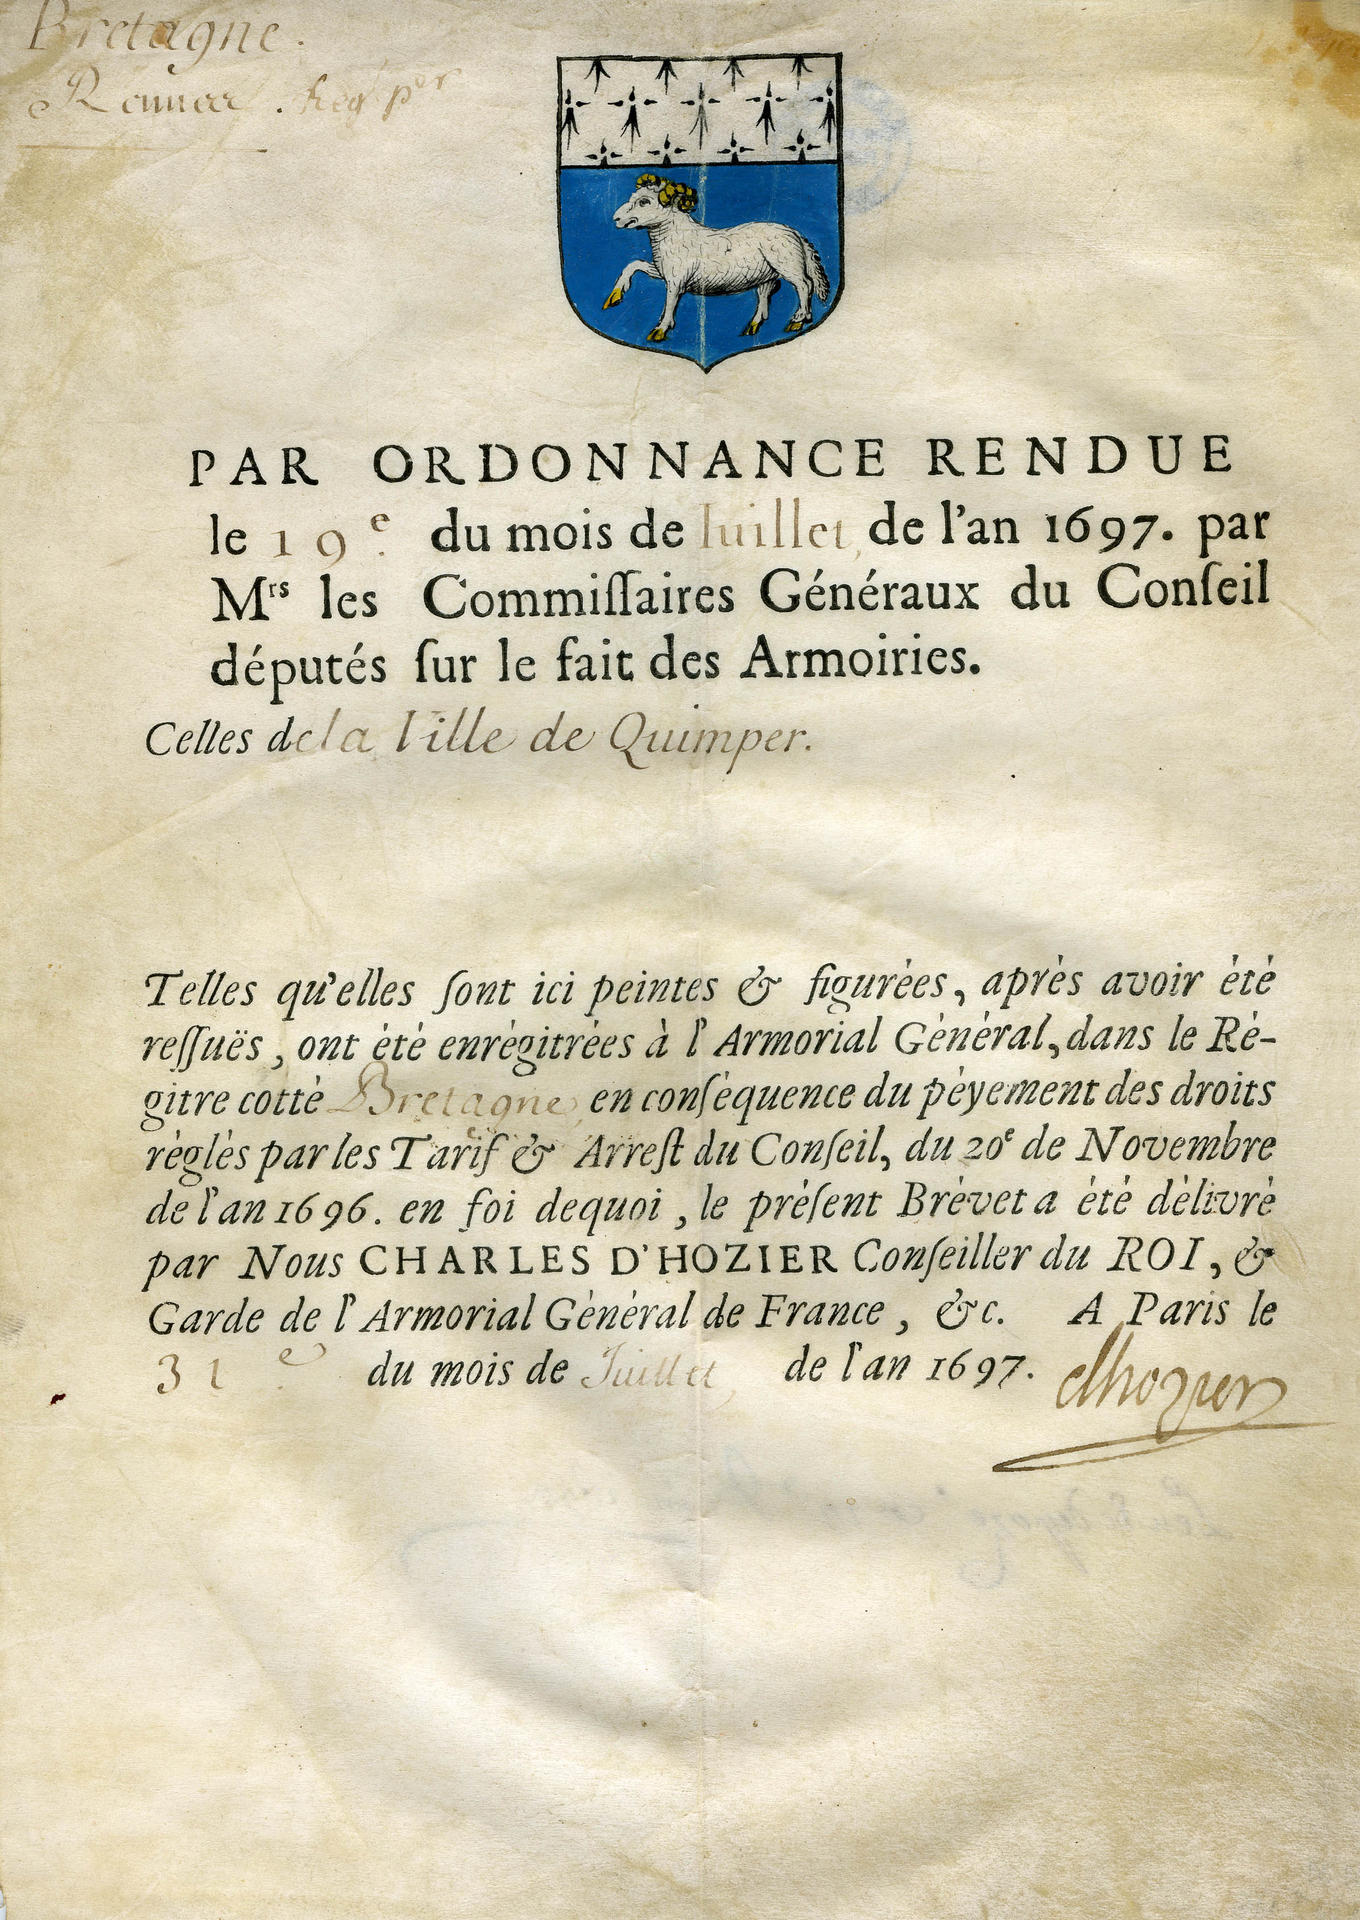 Bretagne.
Reg. per
PAR ORDONNANCE RENDUE
le 19e. du mois de Iuillet, de l'an 1697. par
Mrs les Commiſſaires Généraux du Conſeil
députés ſur le fait des Armoiries.
Celles de la Ville de Quimper.
Telles qu'elles ſont ici peintes & figurèes, après avoir ètè
reſſuës, ont ètè enrègitrèes à l'Armorial Gènèral, dans le Rè-
gitre cottè Bretagne, en conſèquence du pèyement des droits
règlès par les Tarif & Arreſt du Conſeil, du 20e de Novembre
de l'an 1696. en foi dequoi, le prèſent Brèvet a ètè dèlivrè
par Nous CHARLES D'HOZIER Conſeiller du ROI, &
Garde de l'Armorial Gènèral de France, &c. A Paris le
31e. du mois de Juillet, de l'an 1697. dhozier